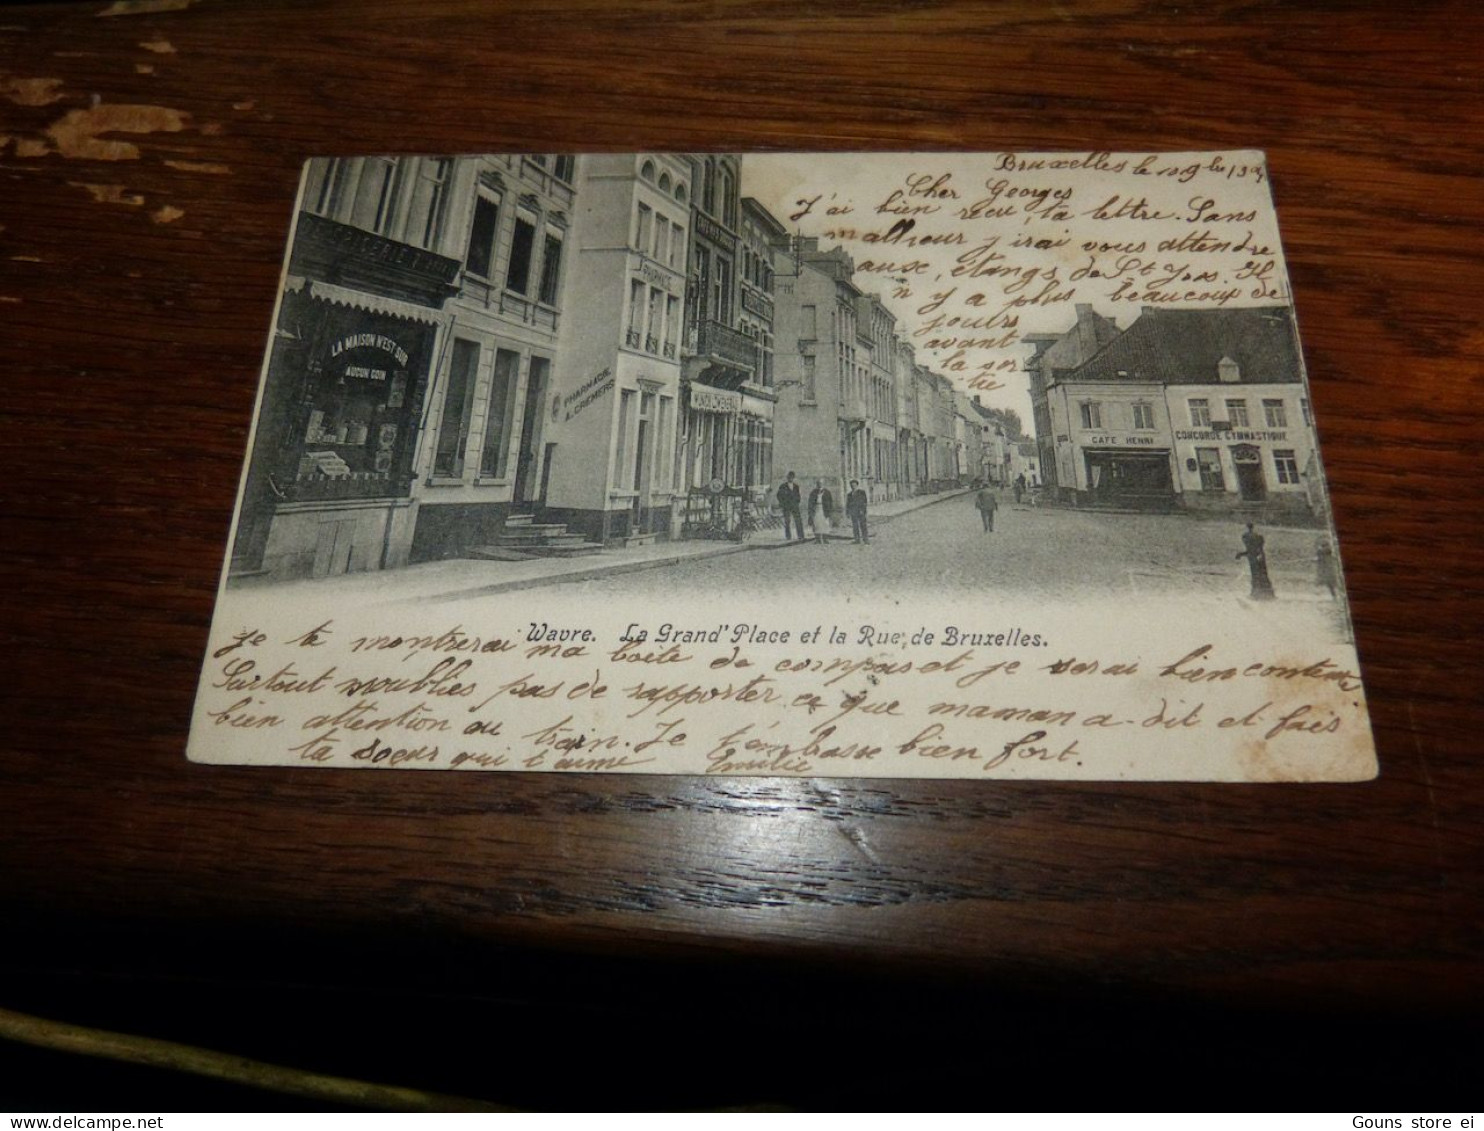 Bruxelles le 10 9bre
Cher Georges
J'ai bien reçu ta lettre. Sans
malheur j'irai vous attendre
aux étangs de St Joos. Il
n'y a plus beaucoup de
jours
avant
la sor
tie
LA MAISON N'EST SUR
AUCUN COIN
PHARMACIE
PHARMACIE
A. CREMERS
CAFÉ HENRI
CONCORDE GYMNASTIQUE
Wavre. La Grand'Place et la Rue de Bruxelles.
Je te montrerai ma boîte de compas et je serai bien contente
Surtout n'oublies pas de rapporter ce que maman a dit et fais
bien attention au train. Je t'embrasse bien fort.
ta soeur qui t'aime Emilie
Gouns store ei